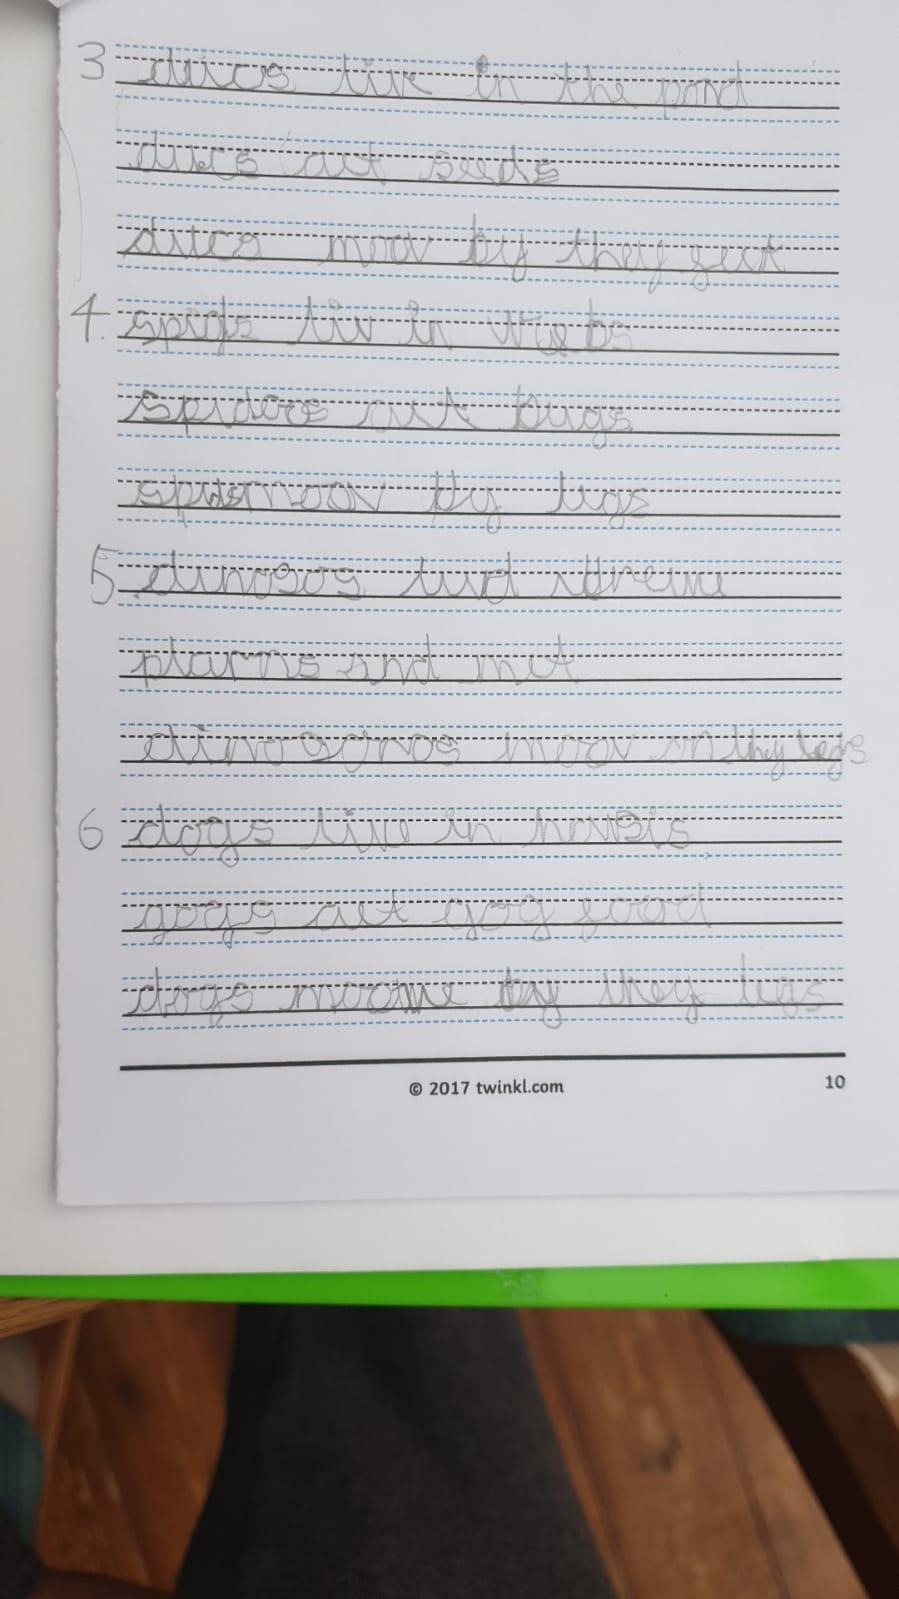 3 ducos live in the pond
ducs aet seeds
ducs moov by they feet
4. spids liv in webs
spiders aet bugs
spids moov by legs
5. dinosos livd
plarns and met
dinosoros moov on they legs
6 dogs live in housis
gogs aet gog food
dogs moove by they legs
© 2017 twinkl.com
10